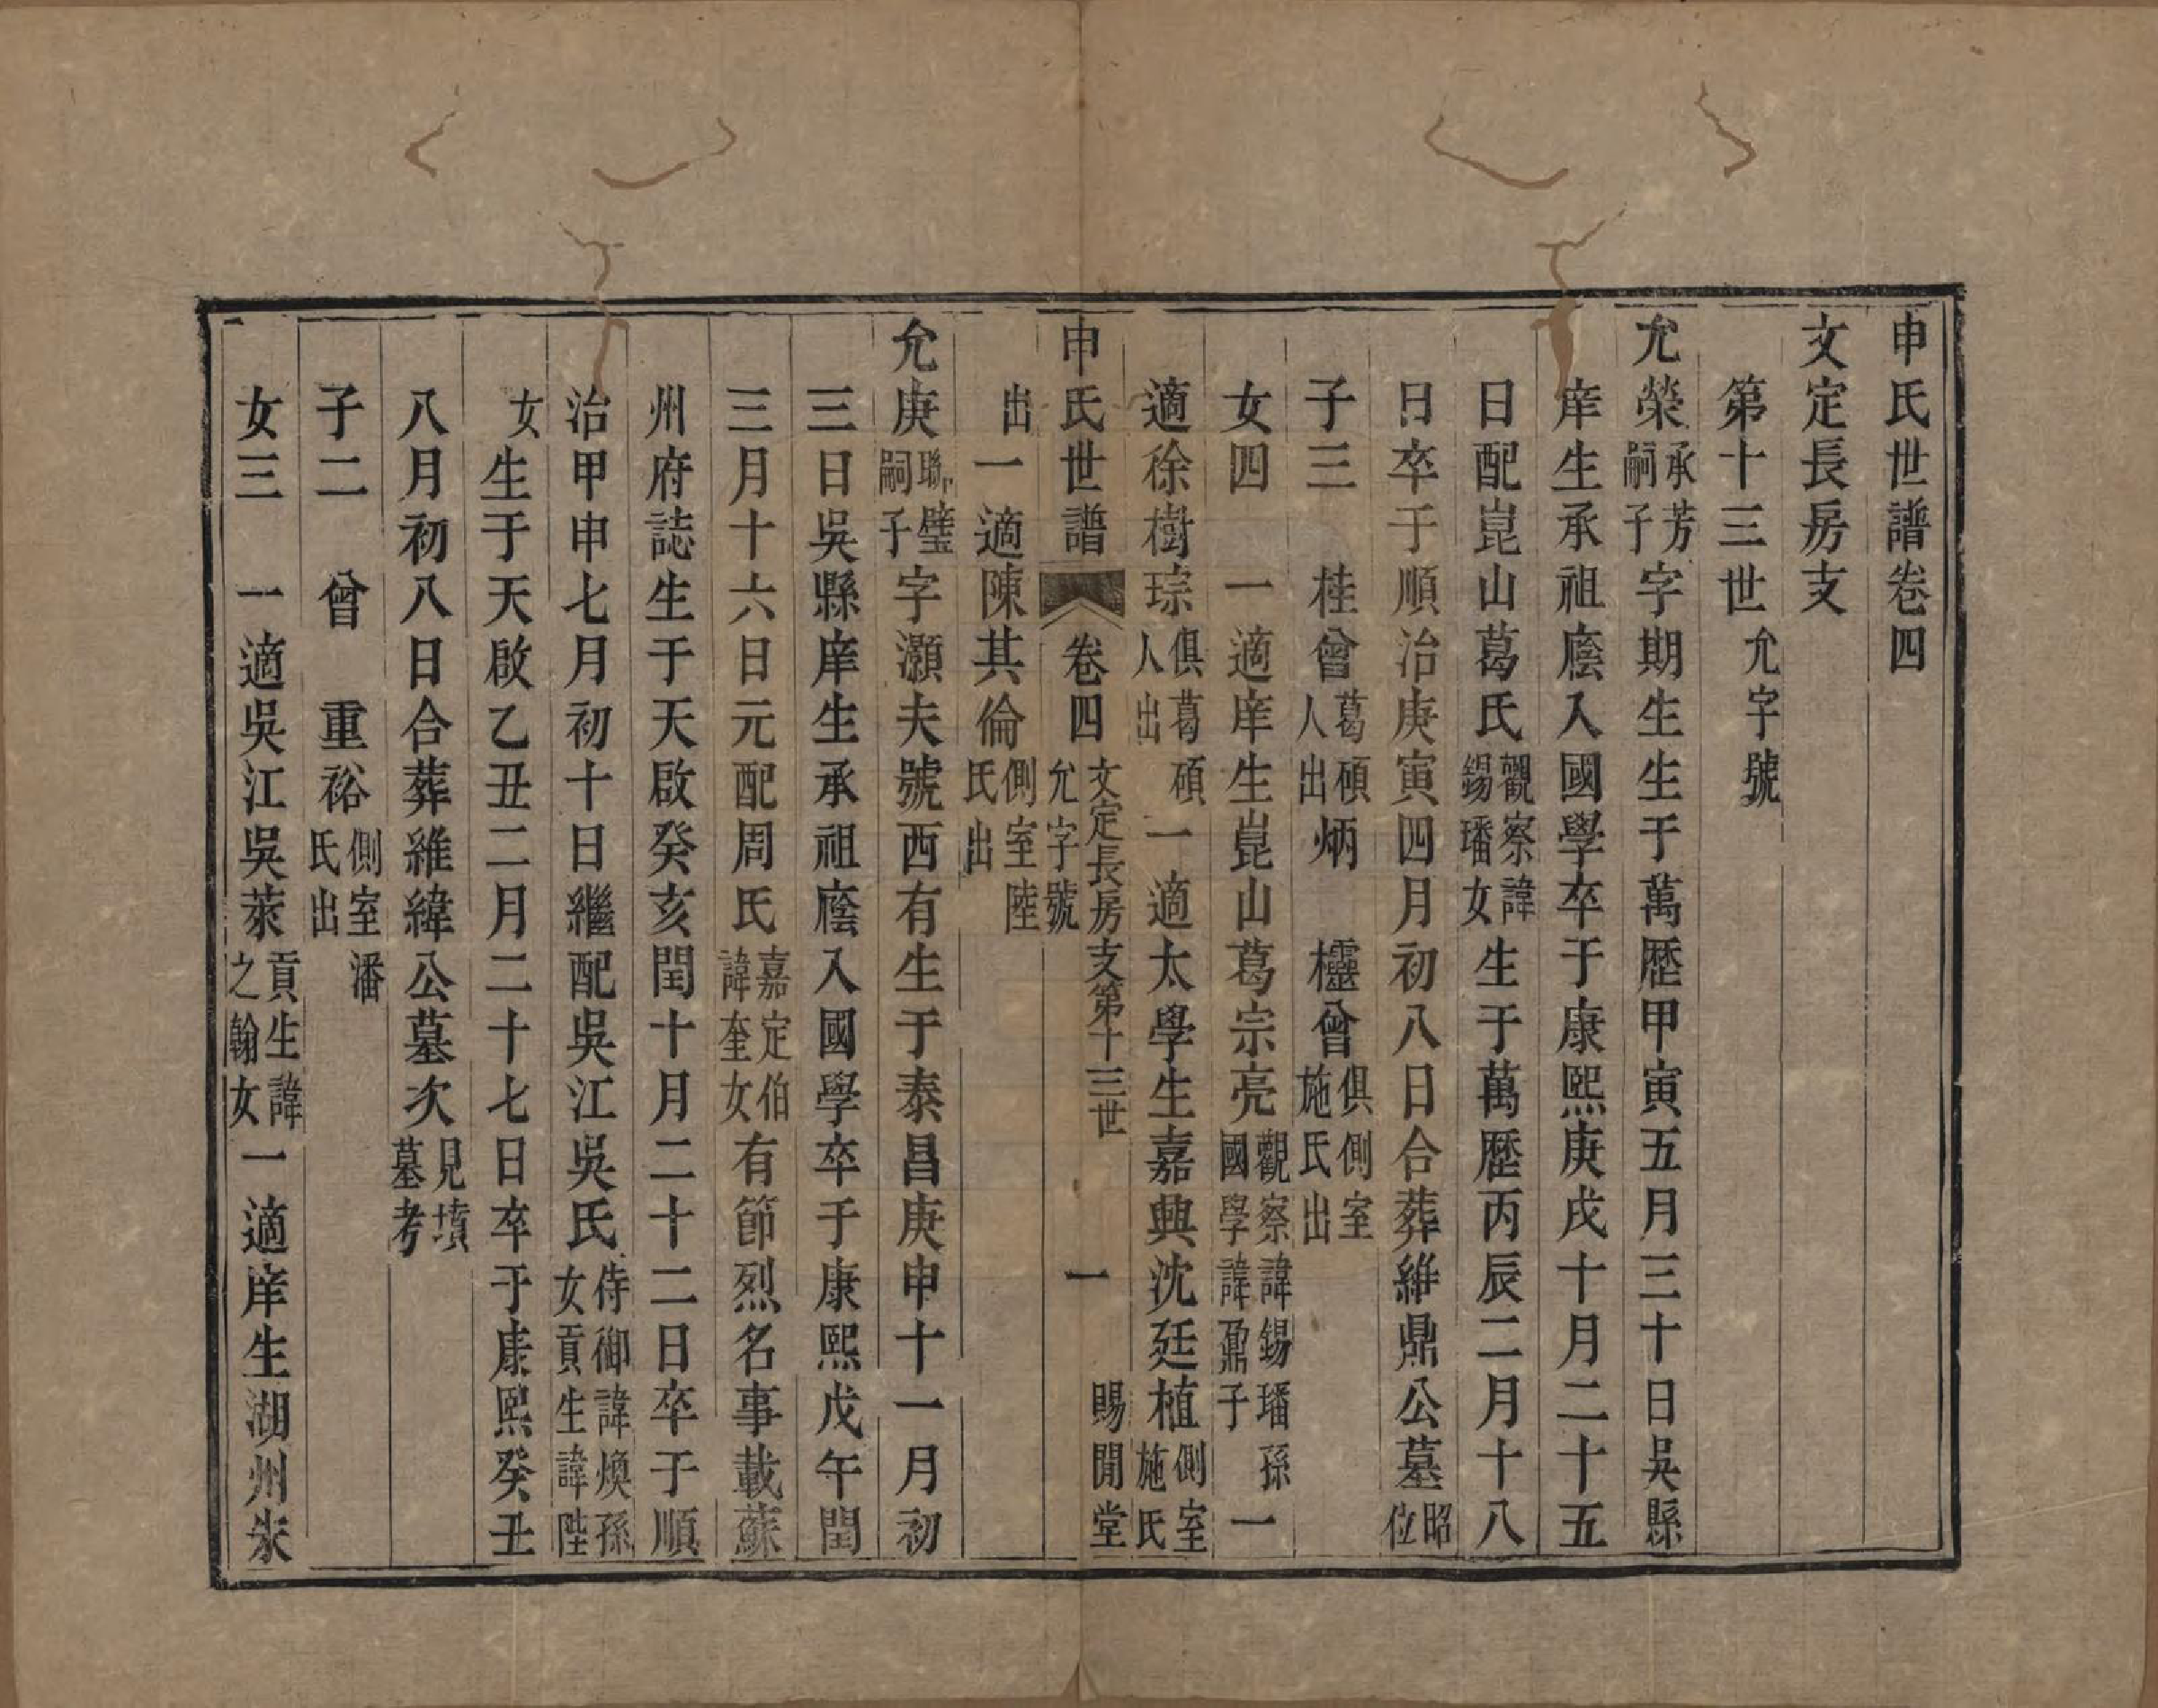 申氏世譜卷四
文定長房支
第十三世允字號
允榮承芳嗣子字期生生于萬歷甲寅五月三十日吳縣
庠生承祖廕入國學卒于康熙庚戌十月二十五
日配崑山葛氏觀察諱錫璠女生于萬歷丙辰二月十八
日卒于順治庚寅四月初八日合葬維鼎公墓昭位
子三　桂曾葛碩人出炳　櫺曾俱側室施氏出
女四　一適庠生崑山葛宗亮觀察諱錫璠孫國學諱鼐子一
適徐樹琮俱葛碩人出一適太學生嘉興沈廷植側室施氏
申氏世譜　卷四　文定長房支第十三世允字號　一　賜閒堂
出一適陳其倫側室陸氏出
允庚聯璧嗣子字灝夫號西有生于泰昌庚申十一月初
三日吳縣庠生承祖廕入國學卒于康熙戊午閏
三月十六日元配周氏嘉定伯諱奎女有節烈名事載蘇
州府誌生于天啟癸亥閏十月二十二日卒于順
治甲申七月初十日繼配吳江吳氏侍御諱煥孫女貢生諱陞
女生于天啟乙丑二月二十七日卒于康熙癸丑
八月初八日合葬維緯公墓次見墳墓考
子二　曾　重裕側室潘氏出
女三　一適吳江吳萊貢生諱之翰女一適庠生湖州朱